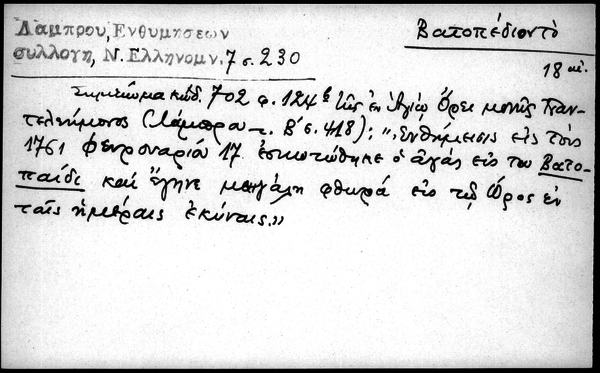 Λάμπρου, Ενθυμήσεων
συλλογή, Ν. Ελληνομν. 7 σ. 230
Βατοπέδιον τὸ
18 αἰ.
Σημείωμα κώδ. 702 φ. 124β τῆς ἐν Ἁγίῳ Ὄρει μονῆς Παν-
τελεήμονος (Λάμπρου τ. Β΄ σ. 418): "Ἐνθήμεισις εἰς τοὺς
1761 φευρουαρίου 17 ἐσκωτώθηκε ὁ ἀγάς εἰς του Βατο-
παίδι καὶ ἔγηνε μεγάλη φθωρά εἰς τῷ Ὥρος ἐν
ταῖς ἡμέραις ἐκύναις."